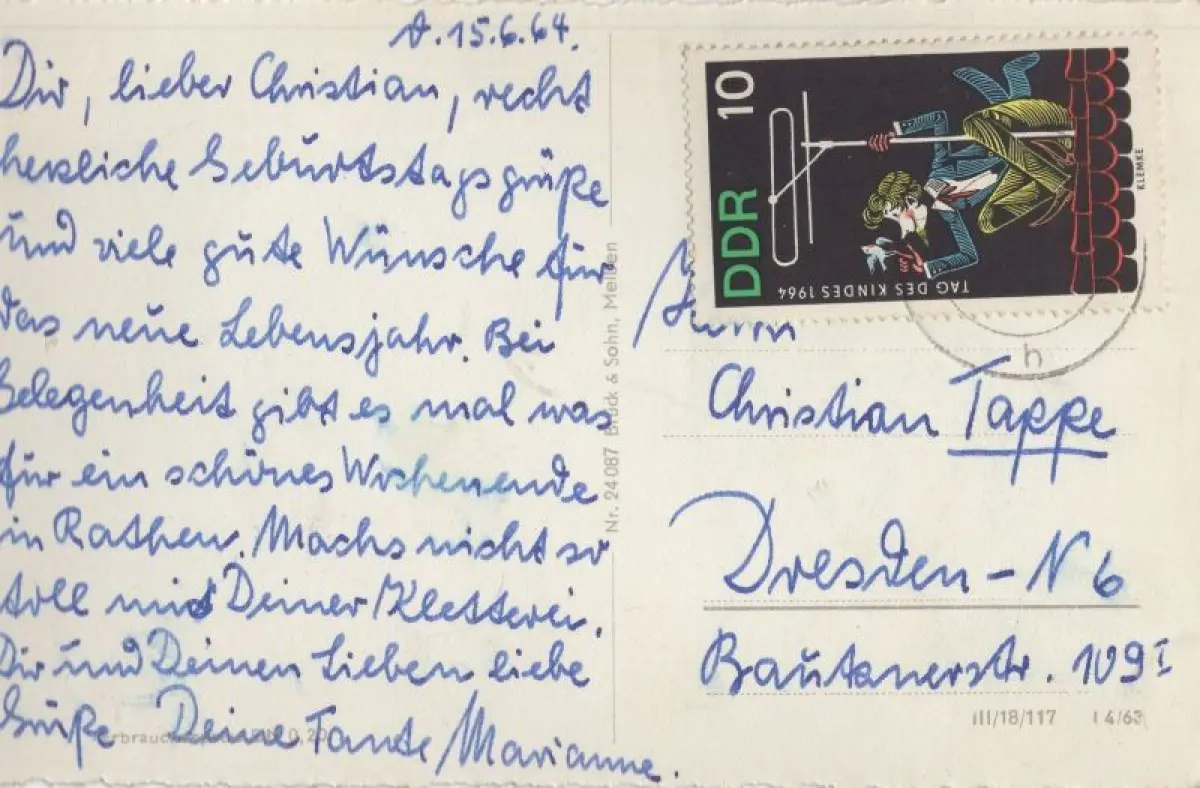 d. 15.6.64.
Dir, lieber Christian, recht
herzliche Geburtstagsgrüße
und viele gute Wünsche für
das neue Lebensjahr. Bei
Gelegenheit gibt es mal was
für ein schönes Wochenende
in Rathen. Machs nicht so
toll mit Deiner Kletterei.
Dir und Deinen Lieben liebe
Grüße Deine Tante Marianne.
Nr. 24087 Brück & Sohn, Meißen
10
DDR
TAG DES KINDES 1964
KLEMKE
h
Herrn
Christian Tappe
Dresden - N 6
Bautznerstr. 109 I
III/18/117 I 4/63